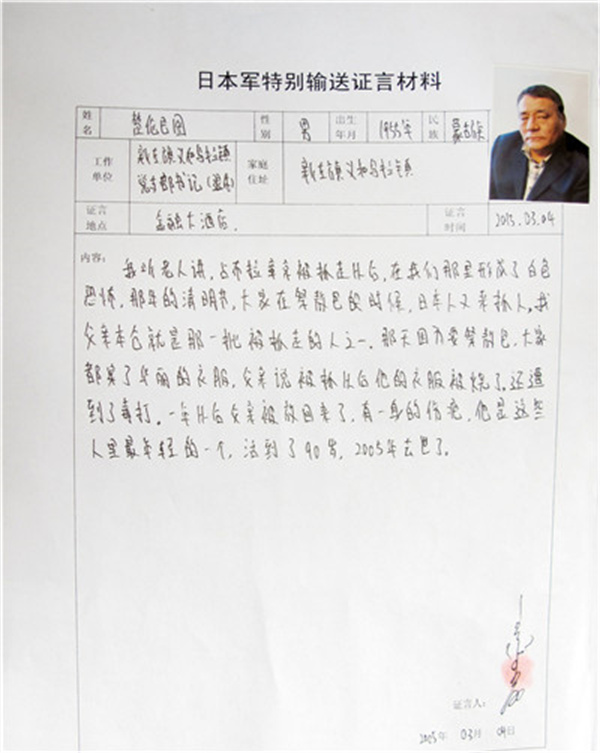 日本军特别输送证言材料
姓名 楚伦巴图 性别 男 出生年月 1955年 民族 蒙古族
工作单位 新左旗 家庭住址 新左旗
证言地点 金融大酒店 证言时间 2013.03.04
内容:
我听老人讲,占布拉章京被抓走以后,在我们那里形成了白色
恐怖,那年的清明节,大家在祭敖包的时候,日本人又来抓人。我
父亲本合就是那一批被抓走的人之一。那天因为要祭敖包,大家
都穿了华丽的衣服,父亲说被抓以后他的衣服被烧了。还遭
到了毒打。一年以后父亲被放回来了,有一身的伤疤,他是这些
人里最年轻的一个,活到了90岁,2005年去世了。
证言人:
2005年 03月 04日